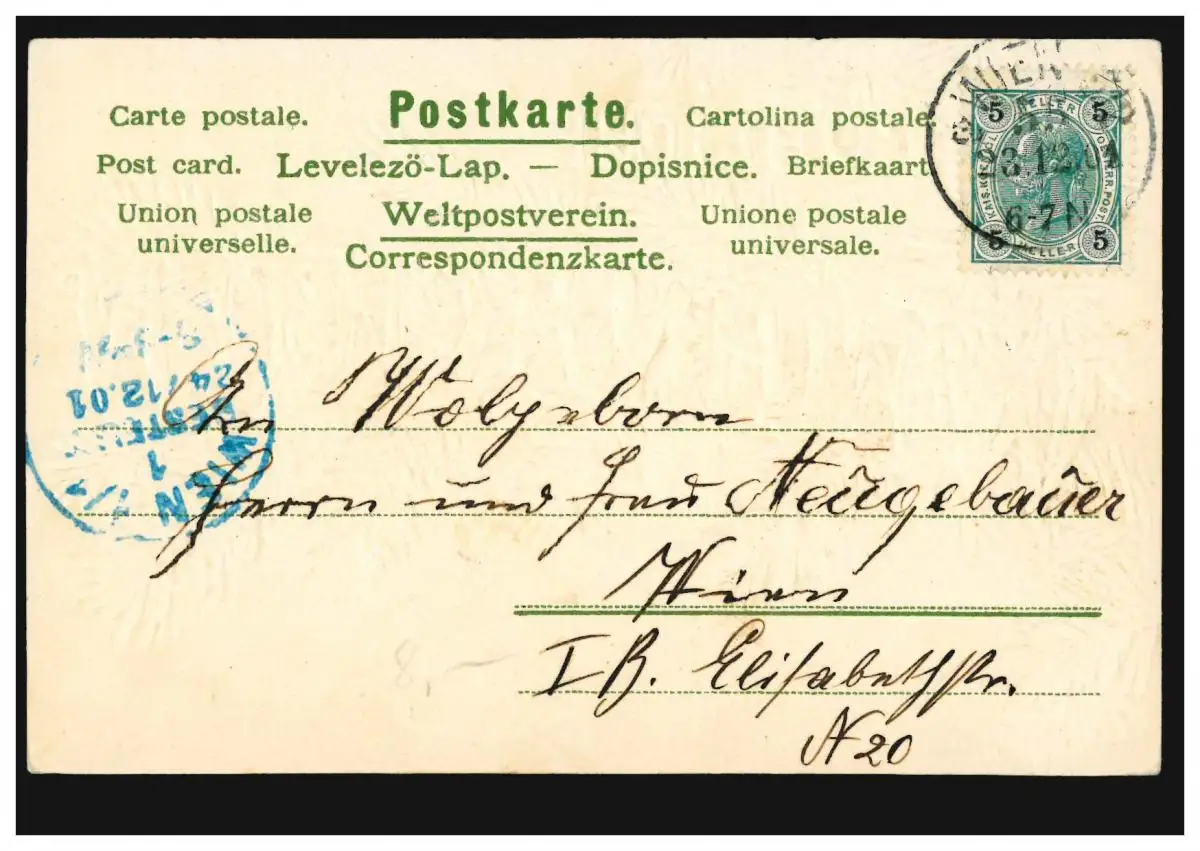 Carte postale. Postkarte. Cartolina postale.
Post card. Levelezö-Lap. — Dopisnice. Briefkaart
Union postale universelle. Weltpostverein. Unione postale universale.
Correspondenzkarte.
WIEN
3.12.01
6-7 N
5 HELLER 5
KAIS. KÖNIGL. ÖSTERR. POST.
5 HELLER 5
WIEN 1/1
1
BESTELLT
24/12.01
An Wolgeborn
Herrn und Frau Neugebauer
Wien
I B. Elisabethstr.
N 20
8 –